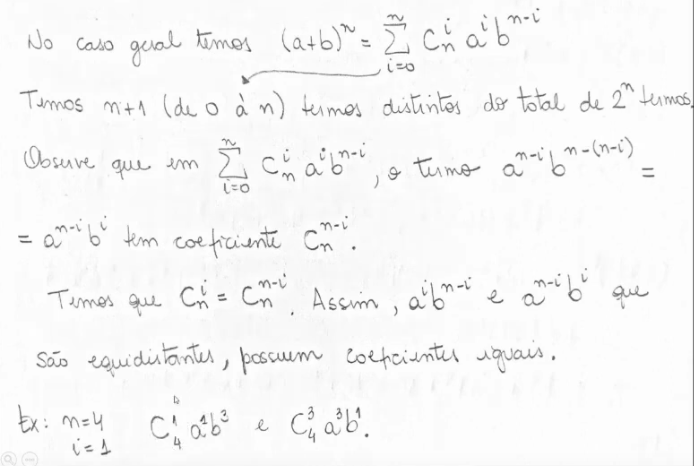 No caso geral temos (a+b)^n = ∑_{i=0}^{n} C_n^i a^i b^{n-i}
Temos n+1 (de 0 à n) termos distintos do total de 2^n termos.
Observe que em ∑_{i=0}^{n} C_n^i a^i b^{n-i}, o termo a^{n-i} b^{n-(n-i)} =
= a^{n-i} b^i tem coeficiente C_n^{n-i}.
Temos que C_n^i = C_n^{n-i}. Assim, a^i b^{n-i} e a^{n-i} b^i que
são equidistantes, possuem coeficientes iguais.
Ex: n=4 C_4^1 a^1 b^3 e C_4^3 a^3 b^1.
i=1